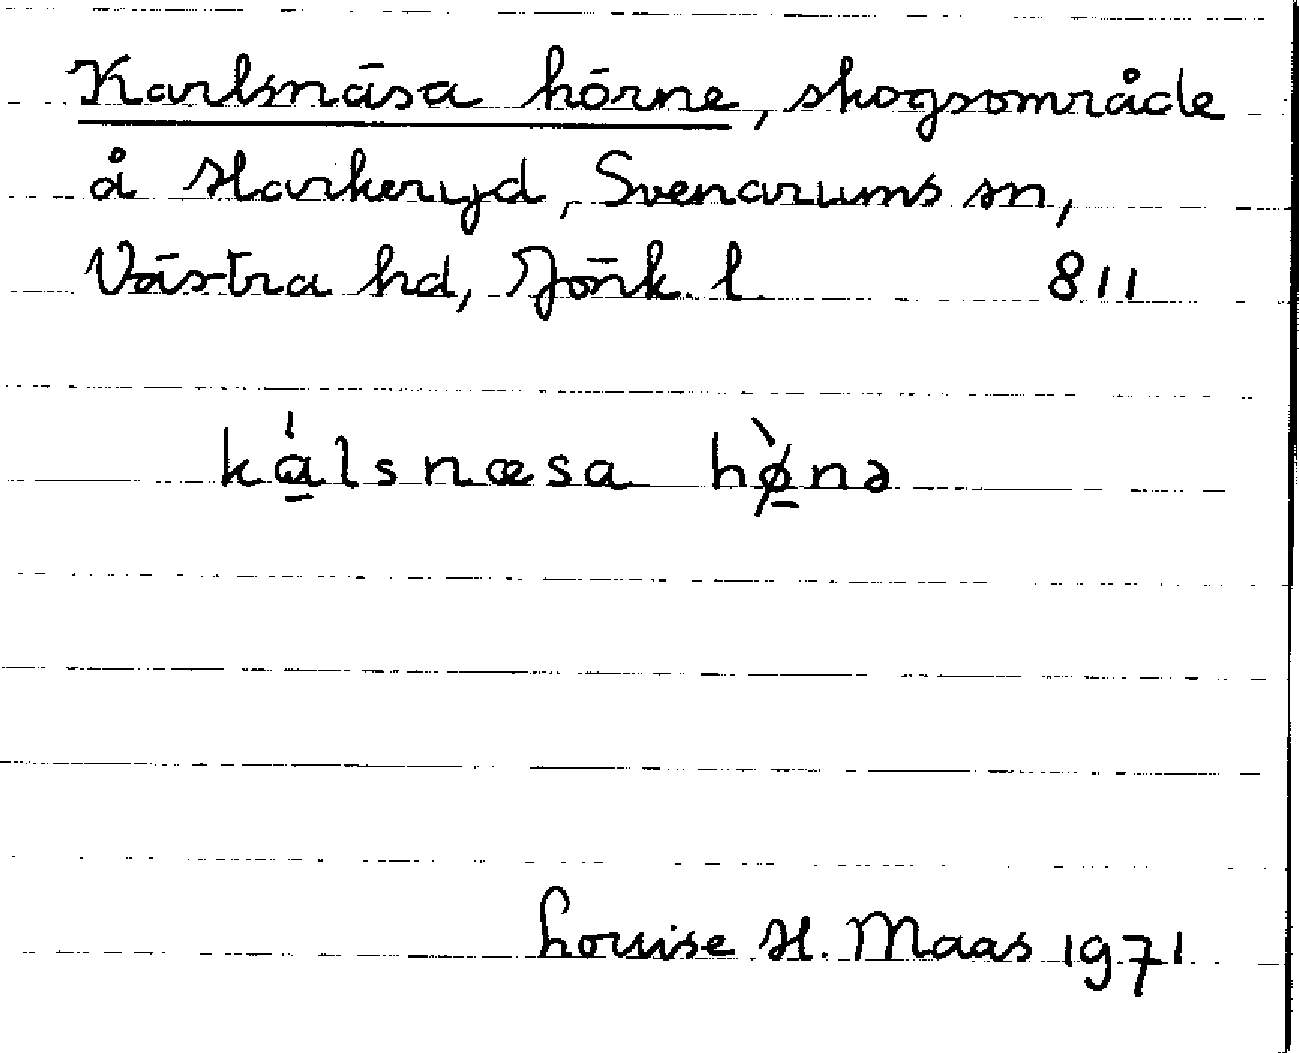 Karlsnäsa hörne, skogsområde
å Harkeryd, Svenarums sn,
Västra hd, Jönk. l. 811
kά̠lsnæsa hø̠̀nə
Louise H. Maas 1971